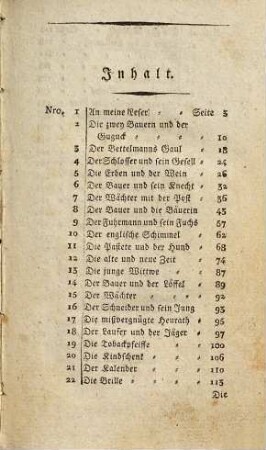 Inhalt.
Nro. 1 An meine Leser „ „ Seite 5
2 Die zwey Bauern und der
Guguck „ „ „ „ 10
3 Der Bettelmanns Gaul „ 18
4 Der Schlosser und sein Gesell „ 24
5 Die Erben und der Wein „ 26
6 Der Bauer und sein Knecht „ 32
7 Der Wächter mit der Pest „ 36
8 Der Bauer und die Bäuerin 45
9 Der Fuhrmann und sein Fuchs 57
10 Der englische Schimmel „ 62
11 Die Pastete und der Hund „ 68
12 Die alte und neue Zeit „ 74
13 Die junge Wittwe „ „ 87
14 Der Bauer und der Löffel „ 89
15 Der Wächter „ „ „ 92
16 Der Schneider und sein Jung 93
17 Die mißvergnügte Heurath „ 96
18 Der Laufer und der Jäger „ 97
19 Die Tobackpfeiffe „ „ 100
20 Die Kindschenk „ „ 106
21 Der Kalender „ „ „ 110
22 Die Brille „ „ „ 113
Die